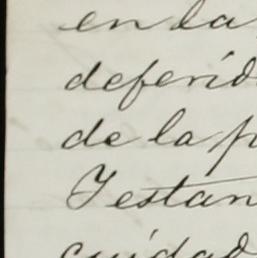 en la
deferid
de la p
Testan
cuidad